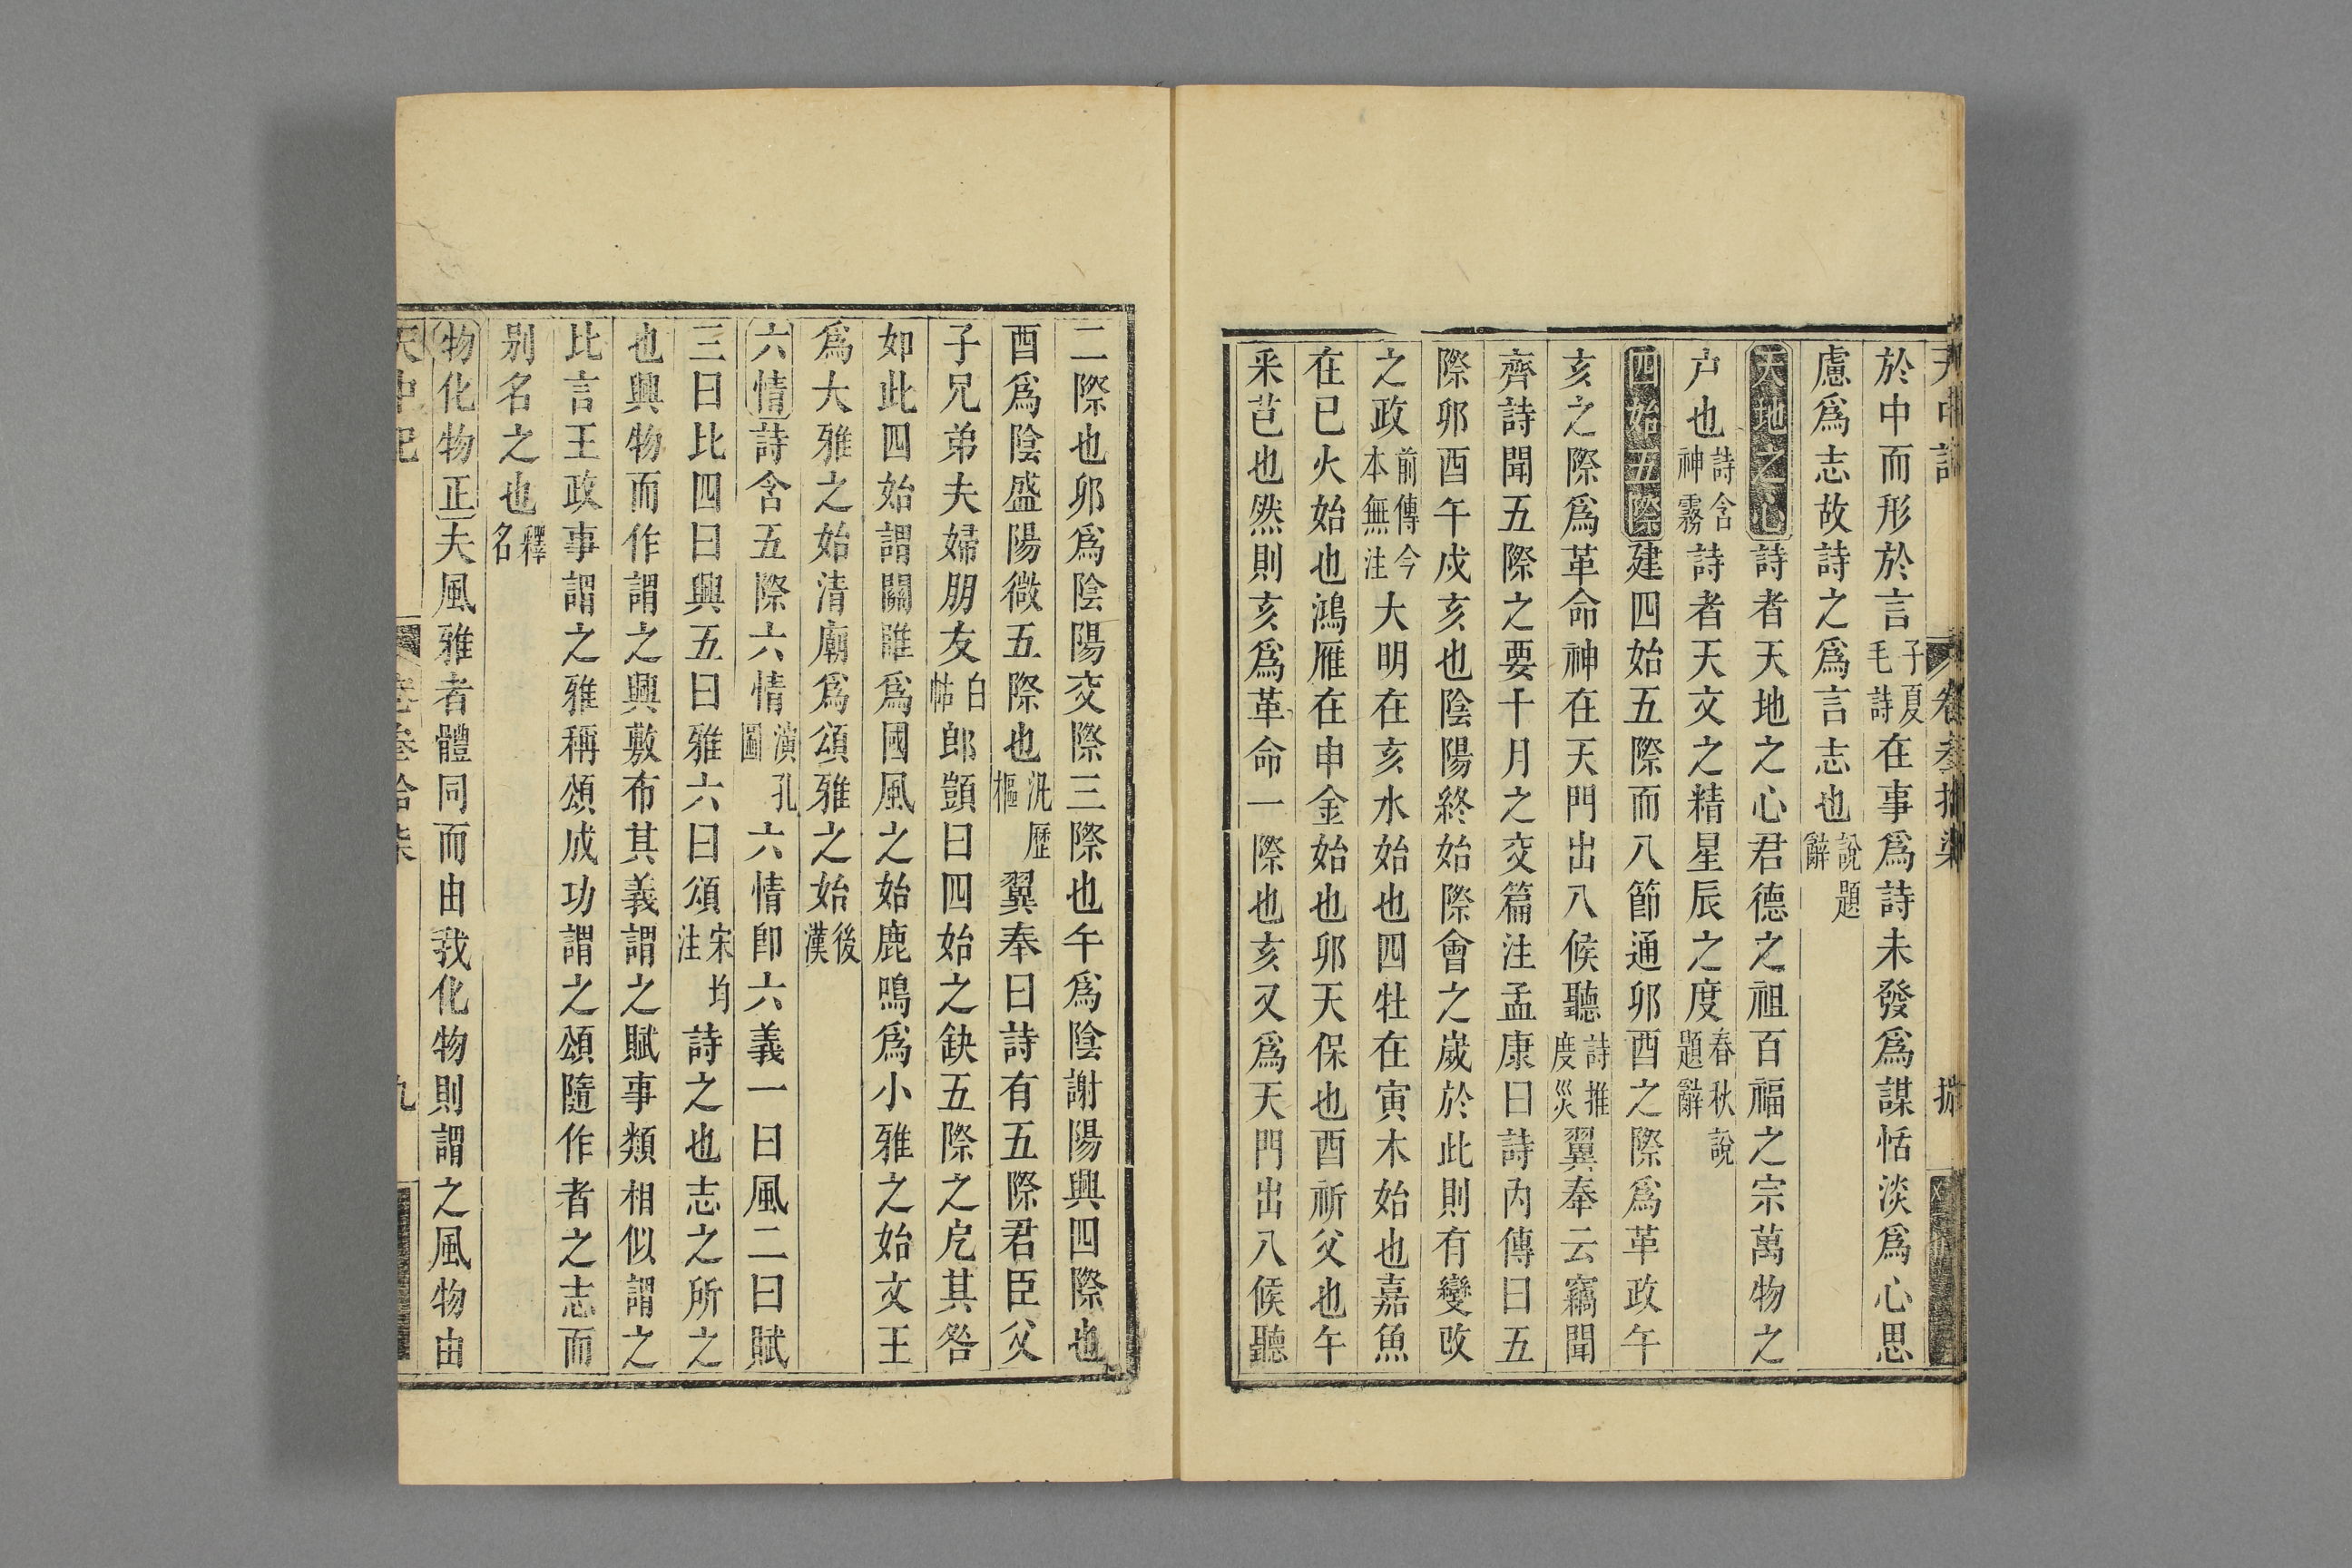 天中記 卷叁拾柒
於中而形於言子夏毛詩在事爲詩未發爲謀恬淡爲心思
慮爲志故詩之爲言志也說題辭
天地之心詩者天地之心君德之祖百福之宗萬物之
户也詩含神霧詩者天文之精星辰之度春秋說題辭
四始五際建四始五際而八節通卯酉之際爲革政午
亥之際爲革命神在天門出八候聽詩推度災翼奉云竊聞
齊詩聞五際之要十月之交篇注孟康曰詩內傳曰五
際卯酉午戍亥也陰陽終始際會之歲於此則有變改
之政前傳今本無注大明在亥水始也四牡在寅木始也嘉魚
在巳火始也鴻雁在申金始也卯天保也酉祈父也午
采芑也然則亥爲革命一際也亥又爲天門出八候聽
二際也卯爲陰陽交際三際也午爲陰謝陽興四際也
酉爲陰盛陽微五際也汎歷樞翼奉曰詩有五際君臣父
子兄弟夫婦朋友白帖郎顗曰四始之缺五際之戹其咎
如此四始謂關雎爲國風之始鹿鳴爲小雅之始文王
爲大雅之始清廟爲頌雅之始後漢
六情詩含五際六情演孔圖六情卽六義一曰風二曰賦
三曰比四曰興五曰雅六曰頌宋均注詩之也志之所之
也興物而作謂之興敷布其義謂之賦事類相似謂之
比言王政事謂之雅稱頌成功謂之頌隨作者之志而
別名之也釋名
物化物正夫風雅者體同而由我化物則謂之風物由
天中記 卷叁拾柒 九